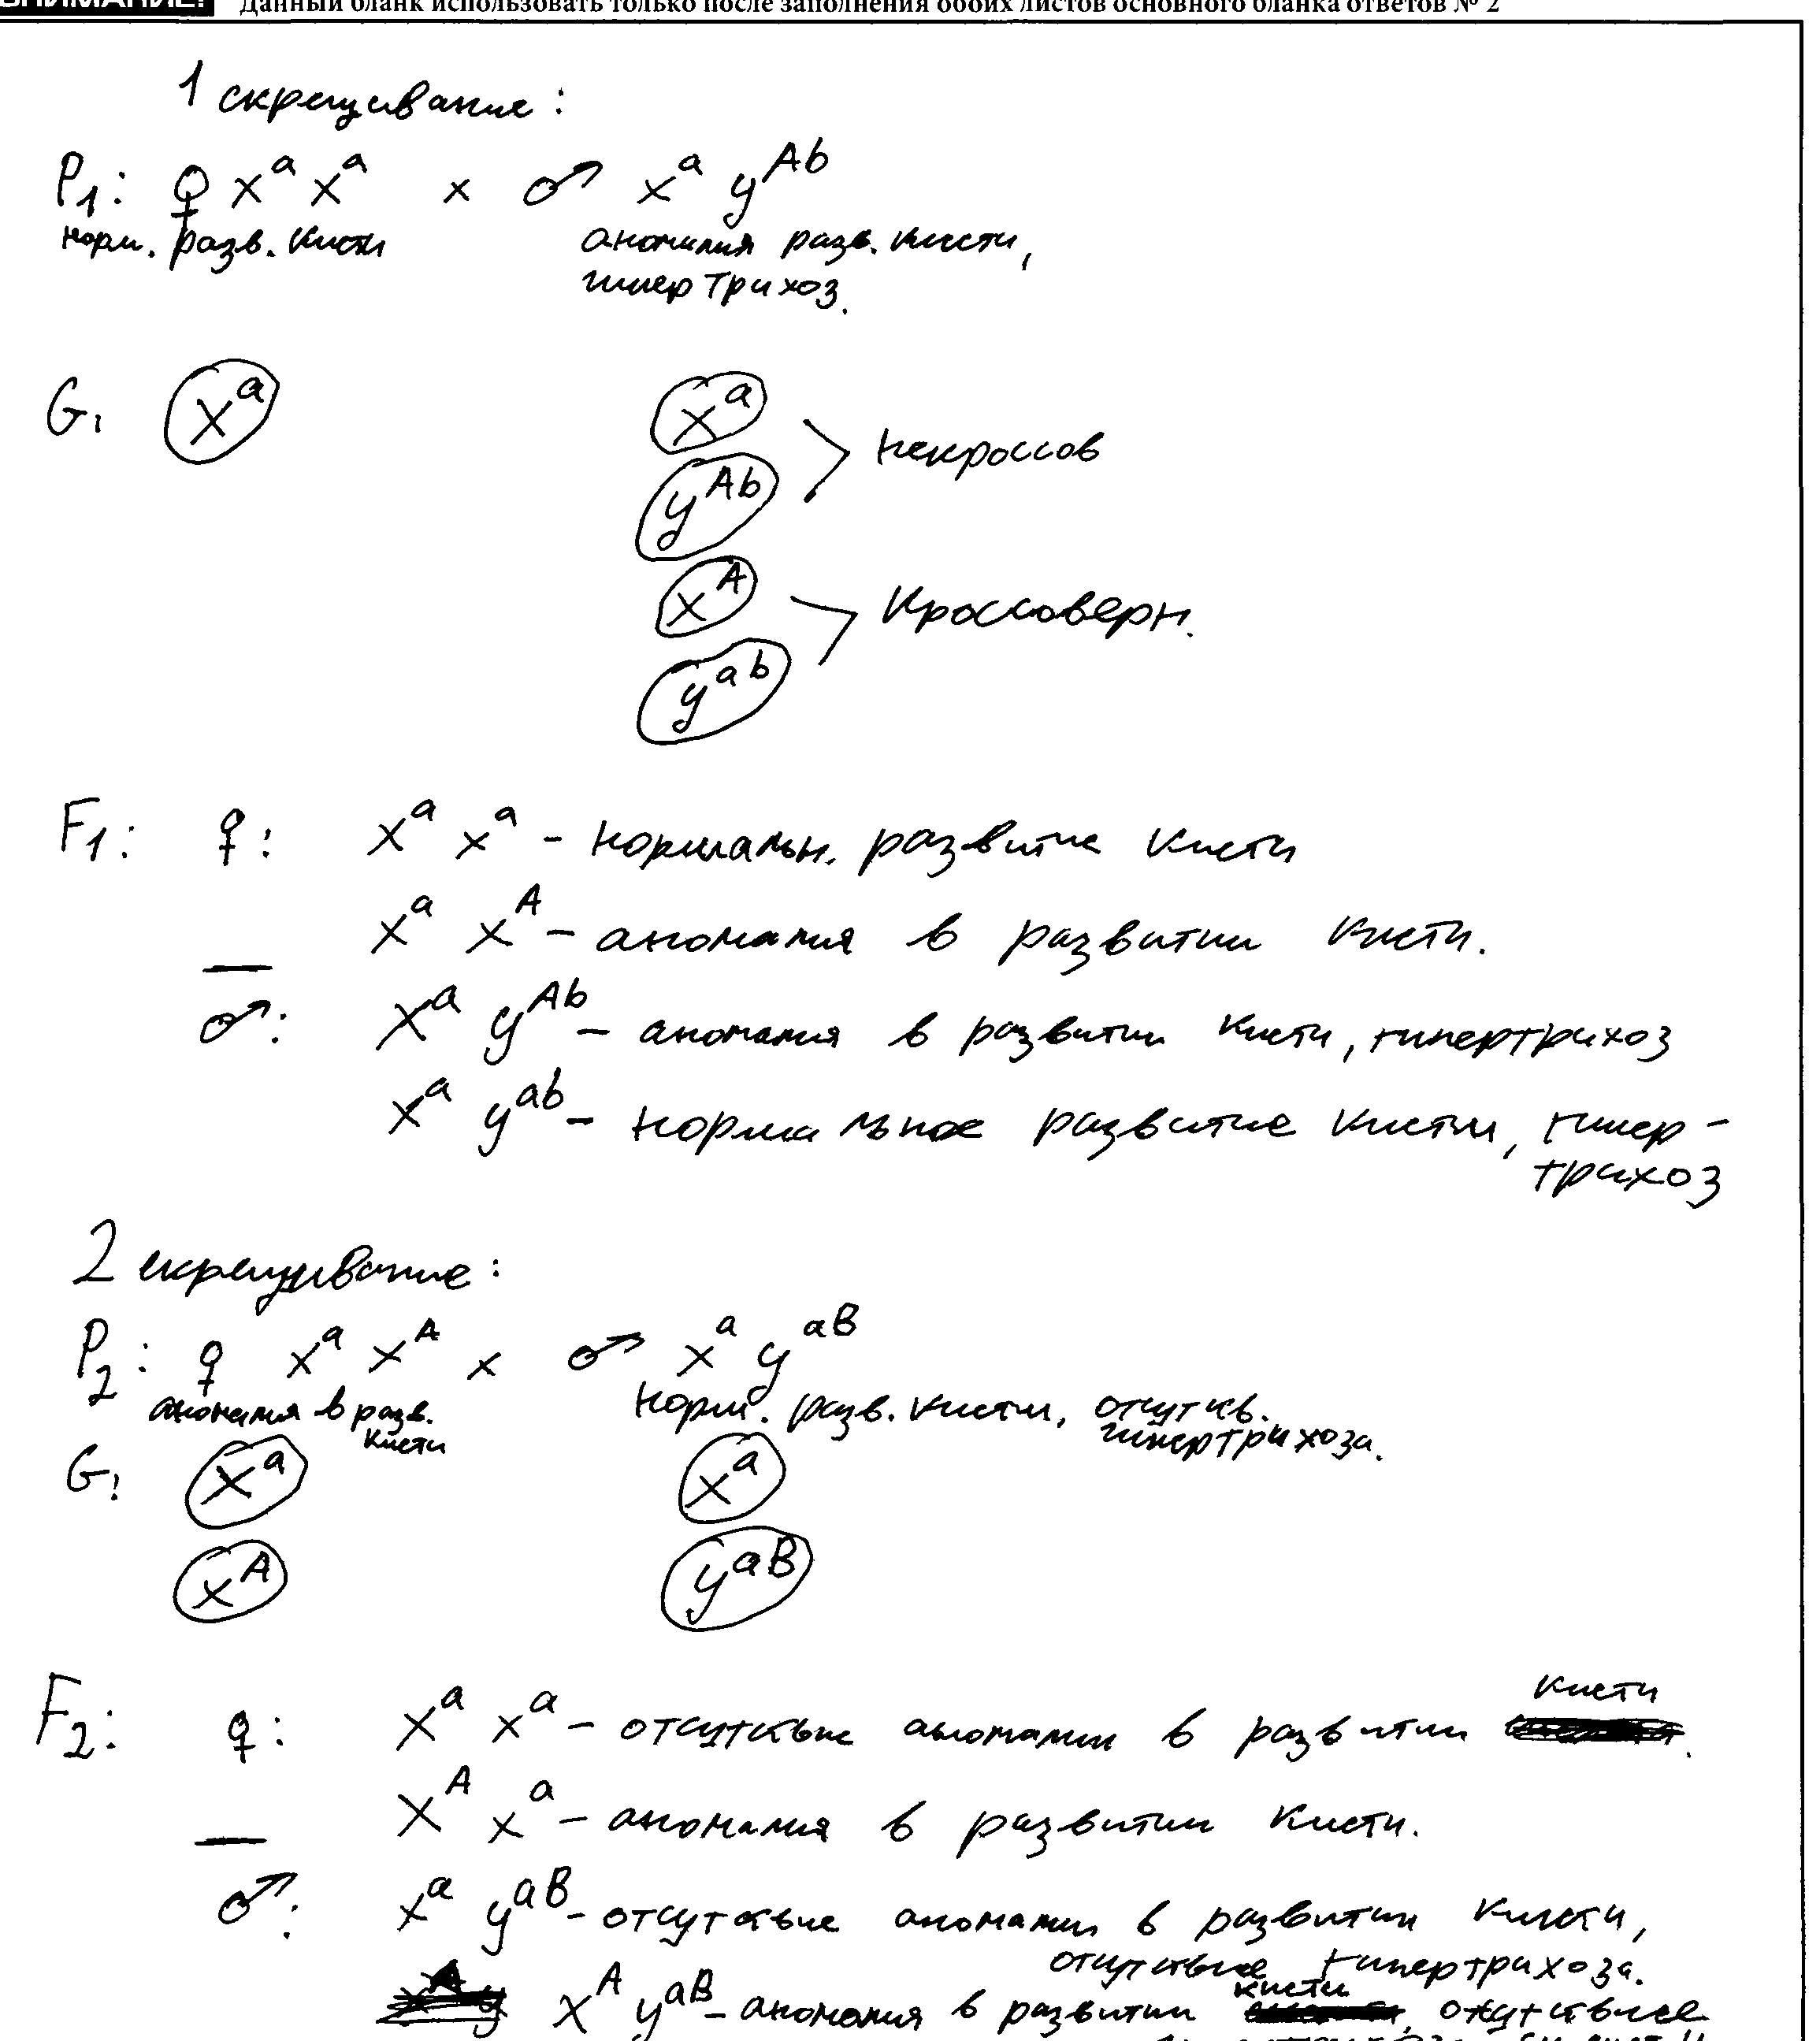 ВНИМАНИЕ! Данный бланк использовать только после заполнения обоих листов основного бланка ответов № 2
1 скрещивание:
P1: ♀ x^a x^a × ♂ x^a y^Ab
норм. разв. кисти аномалия разв. кисти,
гипертрихоз.
G: x^a x^a
y^Ab
некроссов
x^A
y^ab
Кроссоверн.
F1: ♀: x^a x^a - нормальн. развитие кисти
x^a x^A - аномалия в развитии кисти.
♂: x^a y^Ab - аномалия в развитии кисти, гипертрихоз
x^a y^ab - нормальное развитие кисти, гипер-
трихоз
2 скрещивание:
P2: ♀ x^a x^A × ♂ x^a y^aB
аномалия в разв. кисти норм. разв. кисти, отсутств.
гипертрихоза.
G: x^a x^a
x^A y^aB
F2: ♀: x^a x^a - отсутствие аномалии в развитии кисти.
x^A x^a - аномалия в развитии кисти.
♂: x^a y^aB - отсутствие аномалии в развитии кисти,
отсутствие гипертрихоза.
x^A y^aB - аномалия в развитии кисти, отсутствие